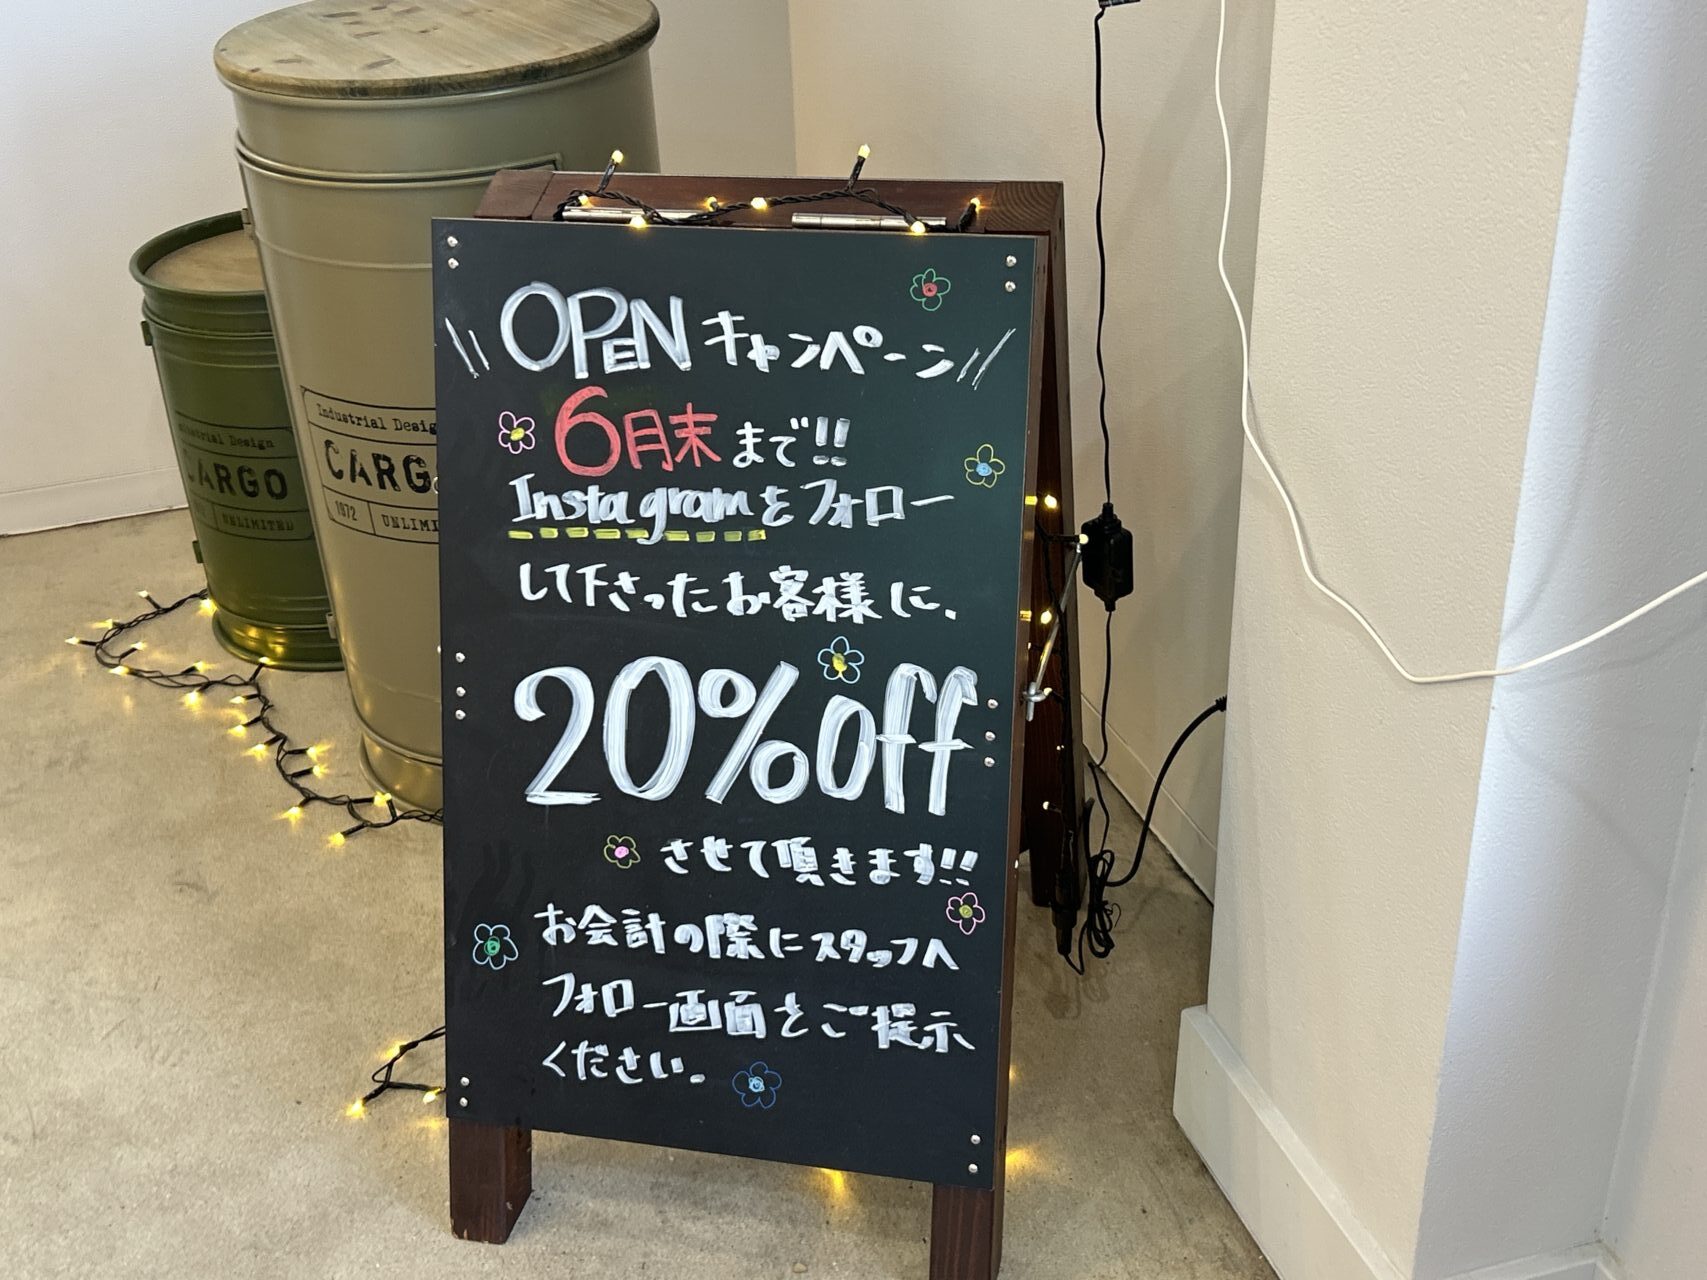 \\ OPEN キャンペーン //
6月末まで!!
Instagramをフォロー
して下さったお客様に、
20%off
させて頂きます!!
お会計の際にスタッフへ
フォロー画面をご提示
ください。
Industrial Desig
CARGO
1972 UNLIMI
Industrial Design
CARGO
UNLIMITED